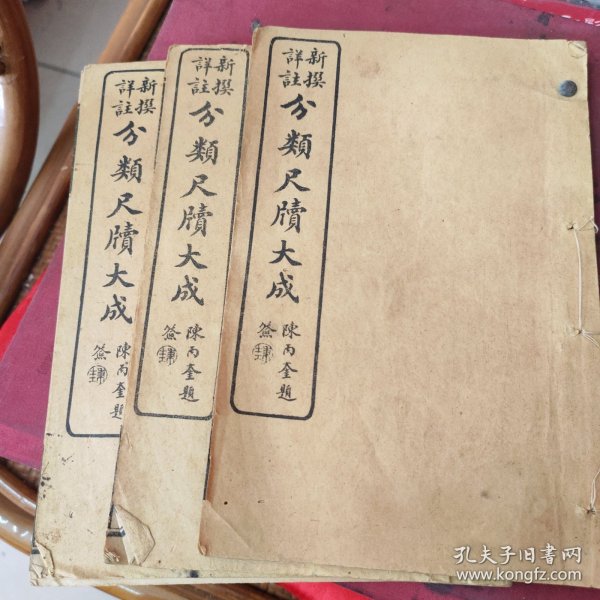 新撰
詳註
分類尺牘大成
陳丙奎題
簽
新撰
詳註
分類尺牘大成
陳丙奎題
簽
新撰
詳註
分類尺牘大成
陳丙奎題
簽
孔夫子旧书网
www.kongfz.com